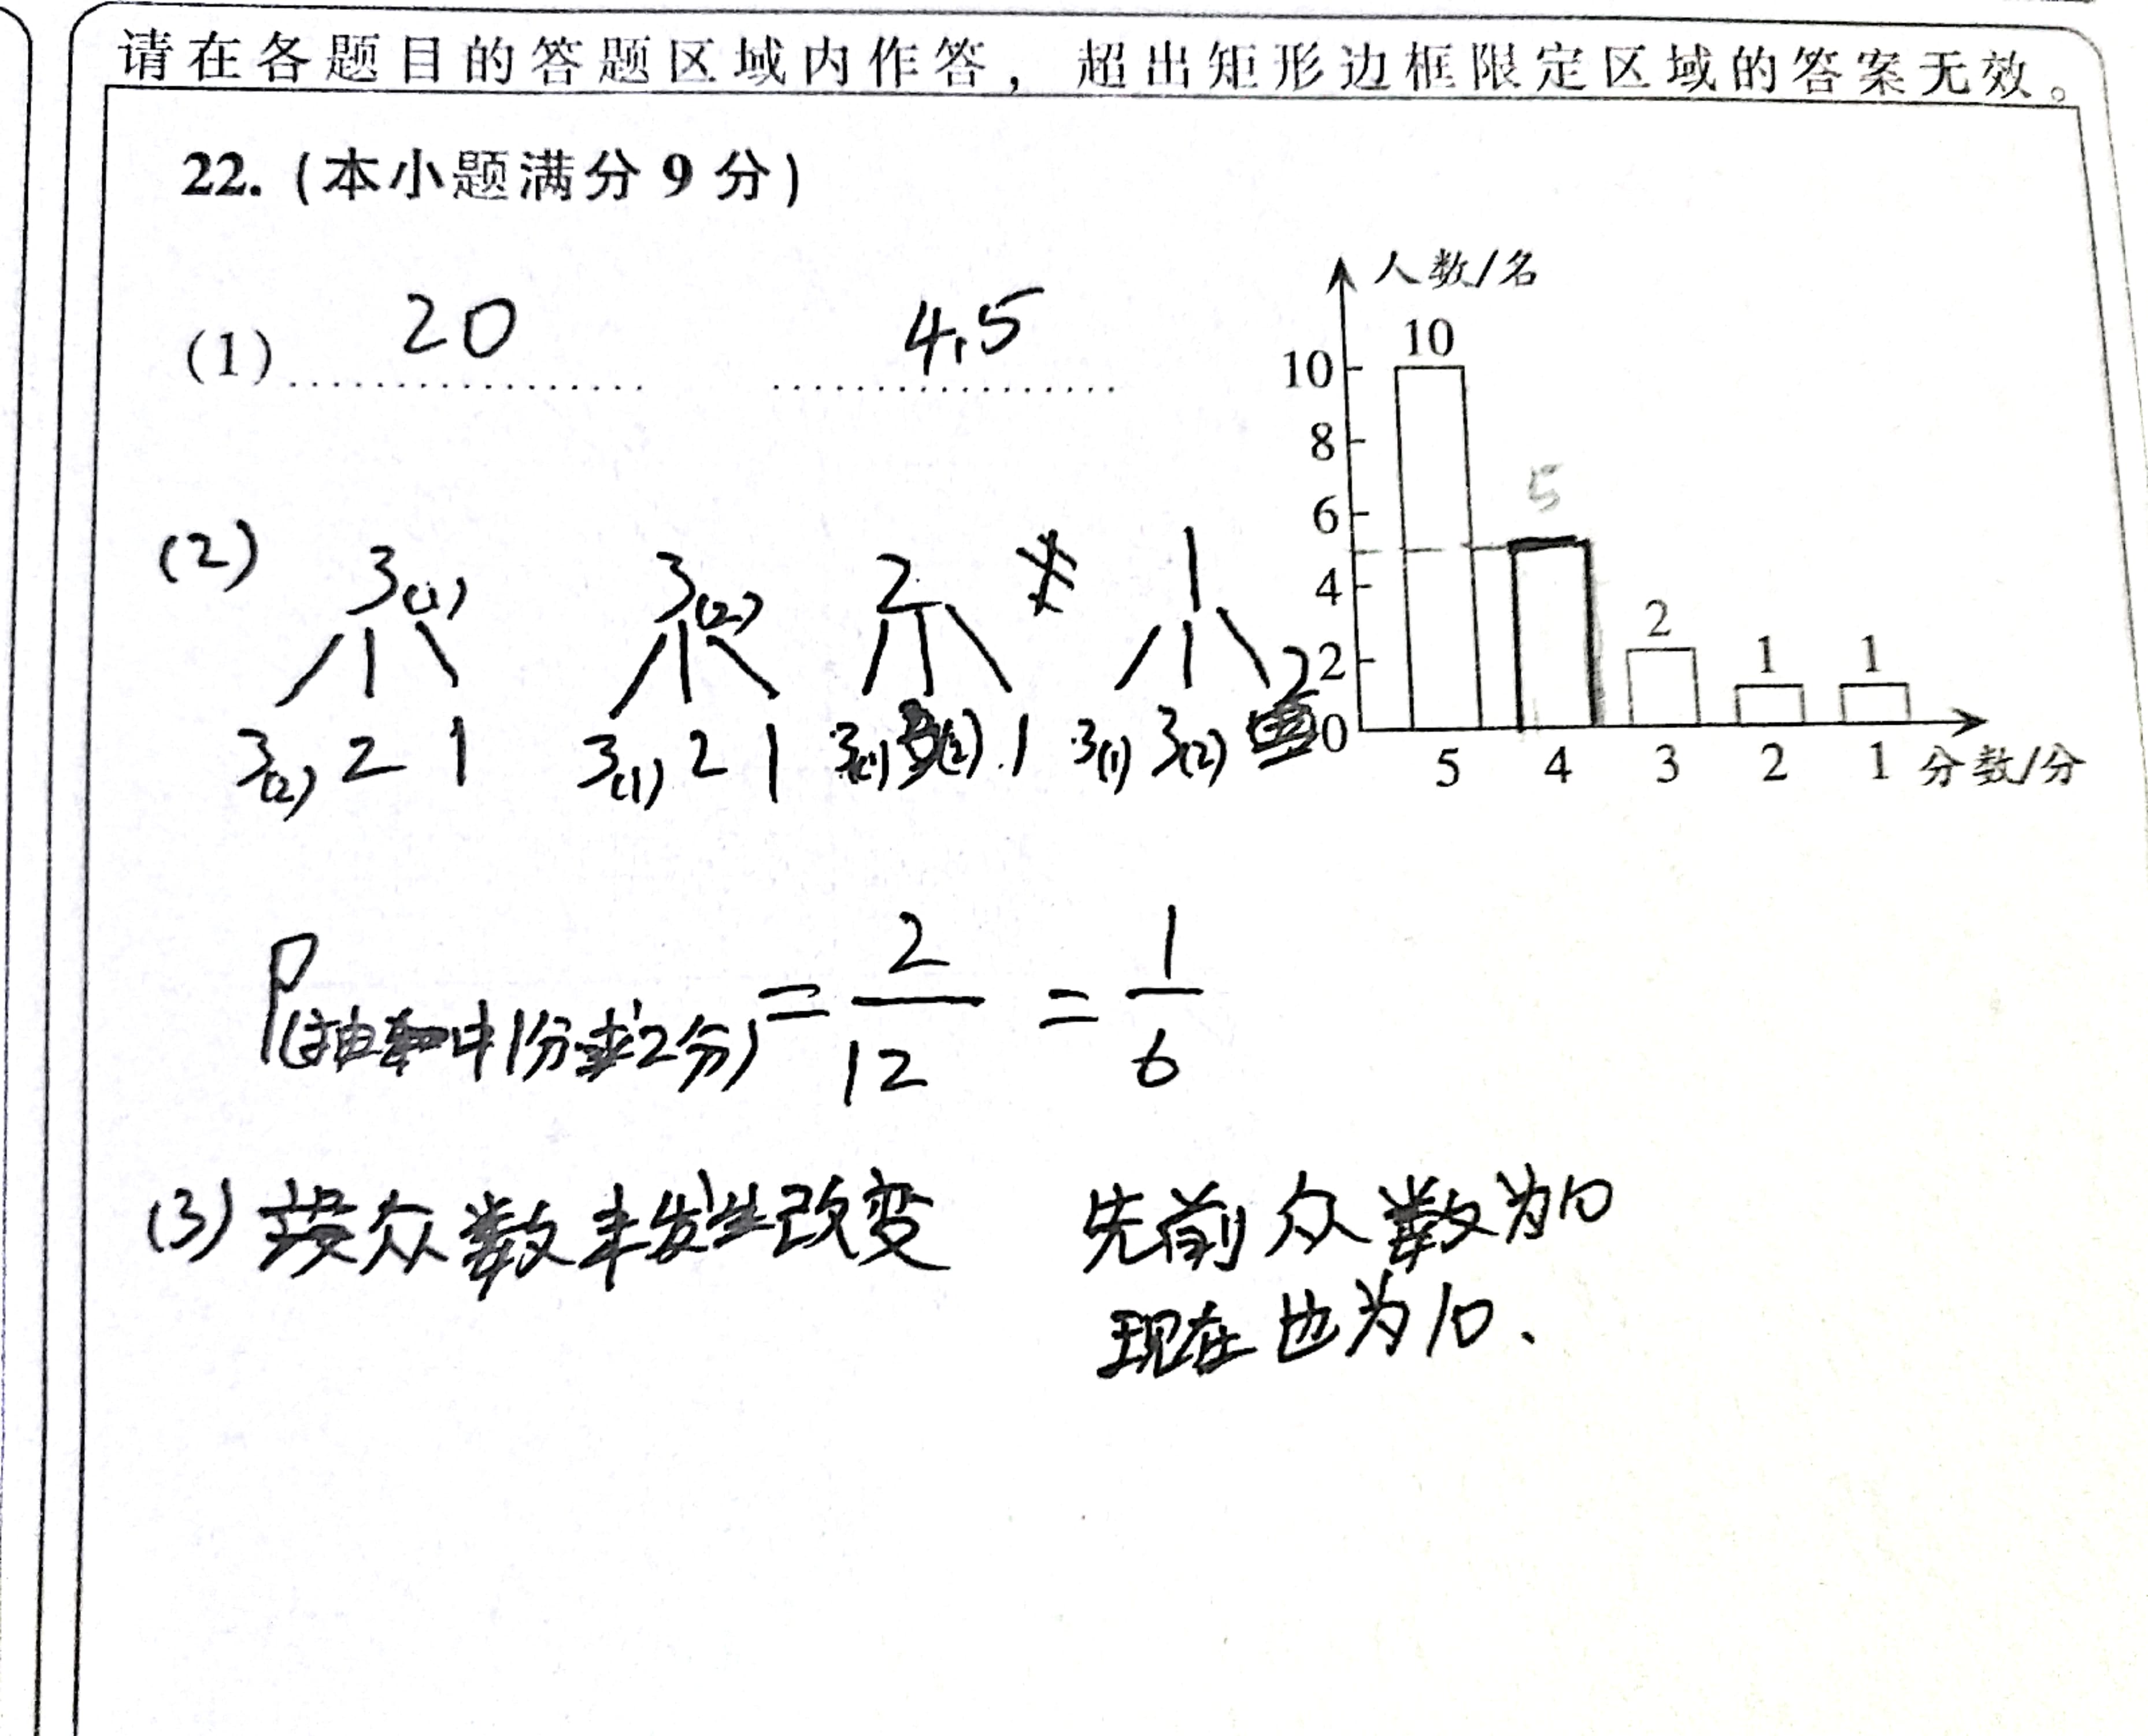 请在各题目的答题区域内作答，超出矩形边框限定区域的答案无效。
22. (本小题满分 9 分)
(1) 20 4.5
人数/名
10
8
6
4
2
0
10
5
2
1
1
5 4 3 2 1 分数/分
(2) 3(1) 3(2) 2 1
3(2) 2 1 3(1) 2 1 3(1) 3(2) 1 3(1) 3(2) 2
P(抽中1分 2分) = 2/12 = 1/6
(3) 众数未发生改变 先前众数为10
现在也为10.